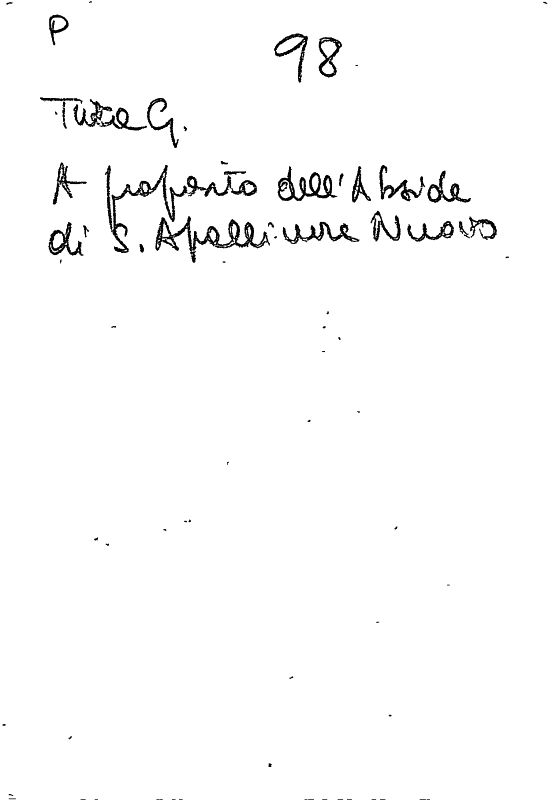 P
98
G.
A proposito dell'Abside
di S. Apollinare Nuovo